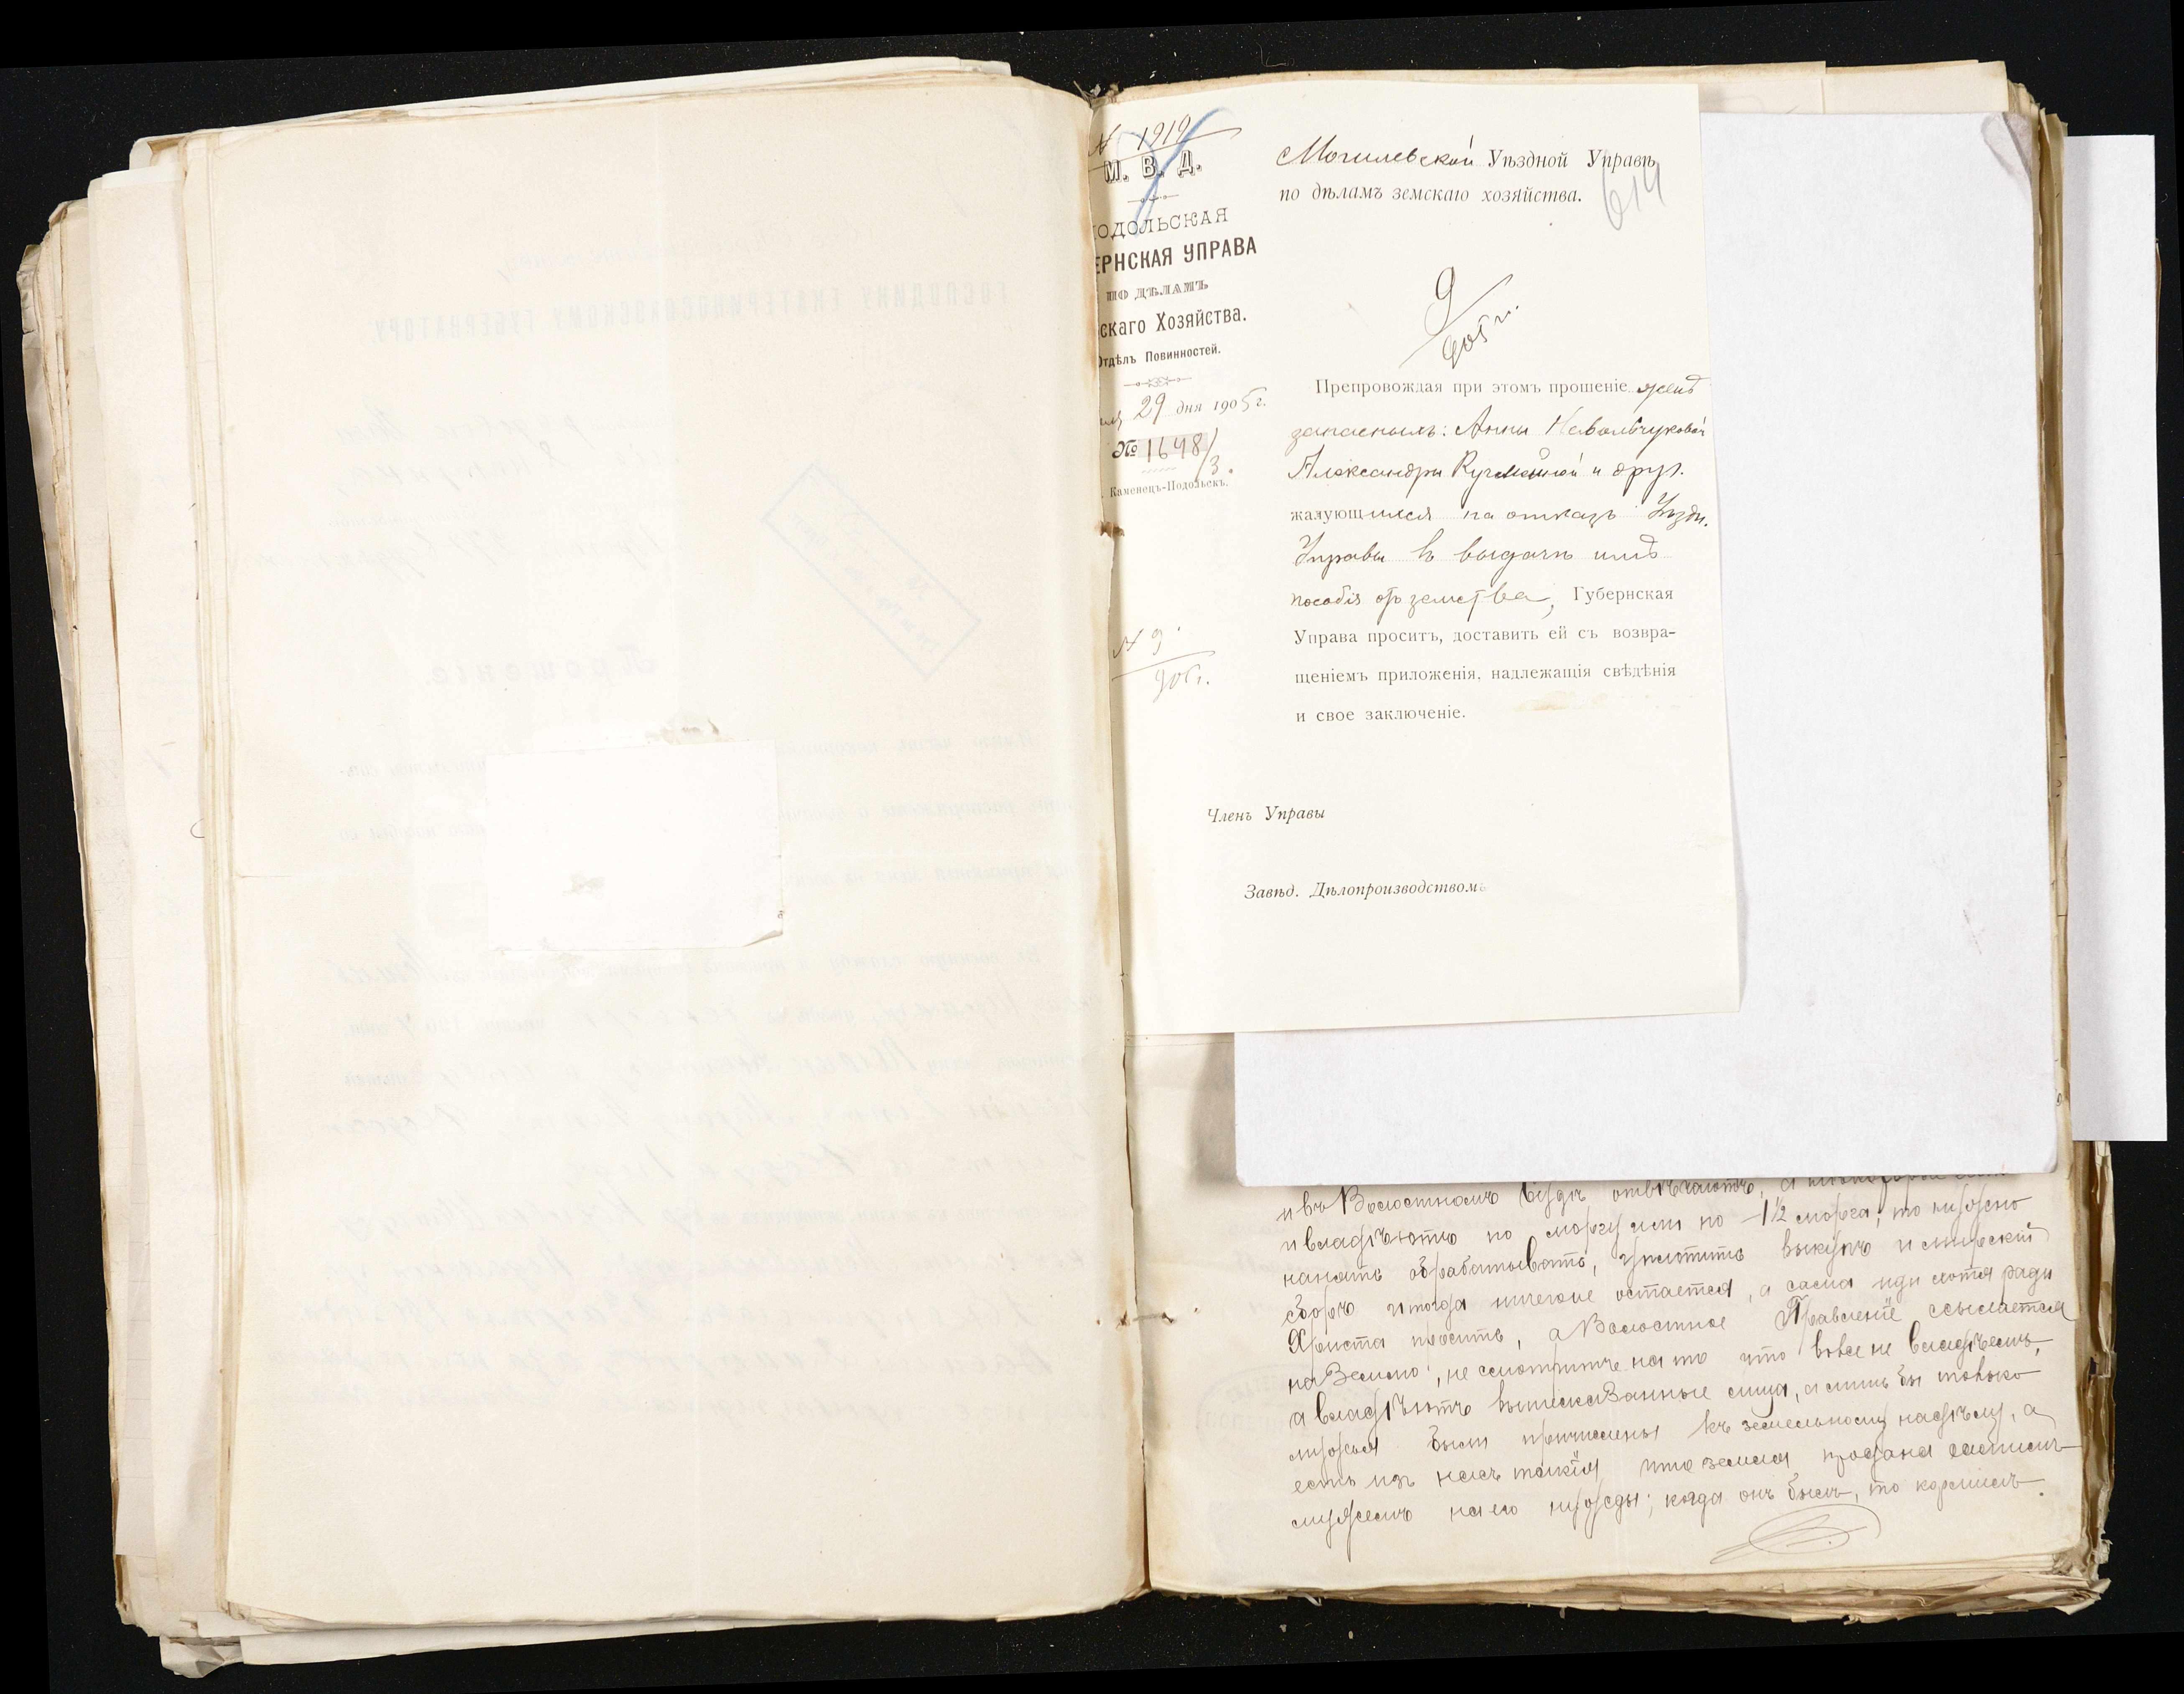 № 1919
М. В. Д.
ПОДОЛЬСКАЯ
ЕРНСКАЯ УПРАВА
ПО ДѢЛАМЪ
скаго Хозяйства.
Отдѣлъ Повинностей.
29 дня 1905 г.
№ 1648/3.
Каменецъ-Подольскъ.
№ 9
905 г.
Могилевской Уѣздной Управѣ
по дѣламъ земскаго хозяйства.
614
9
905 г.
Препровождая при этомъ прошеніе женъ
запасныхъ: Анны
Александры и друг.
жалующихся на отказъ Уѣздн.
Управы въ выдачѣ имъ
пособія отъ земства, Губернская
Управа проситъ, доставить ей съ возвра-
щеніемъ приложенія, надлежащія свѣдѣнія
и свое заключеніе.
Членъ Управы
Завѣд. Дѣлопроизводствомъ
и въ Волостномъ судѣ отвѣчаютъ, а
и владѣютъ по моргу или по 1½ морга, то нужно
нанять обрабатывать, уплотить выкупъ и мирской
сборъ и тогда ничегоне остается, а сама иди хотя ради
Христа просить, а Волостное Правленіе ссылается
на Землю, не смотритъ на то что вовсе не владѣемъ,
а владѣютъ вышесказанные лица, а лишь бы только
мужья были причислены къ земельному надѣлу, а
есть изъ насъ такія что земля продана самимъ
мужемъ на его нужды; когда онъ былъ, то кормилъ